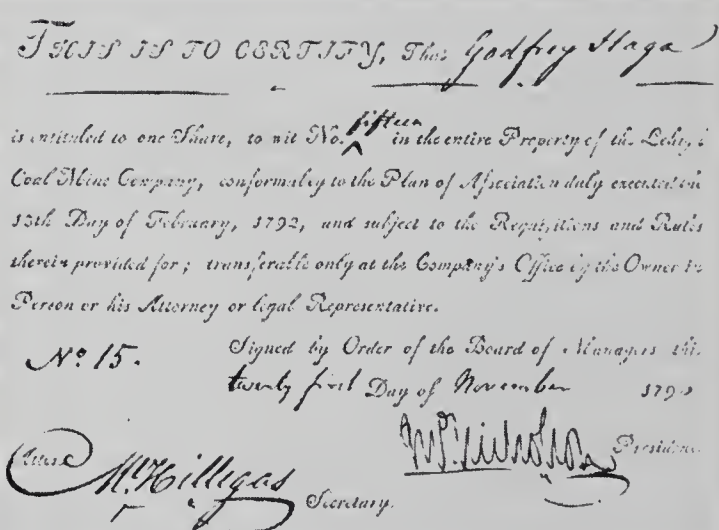 THIS IS TO CERTIFY, That Godfrey Haga
is entituled to one Share, to wit No. fifteen in the entire Property of the Lehigh
Coal Mine Company, conformably to the Plan of Association duly executed the
13th Day of February, 1792, and subject to the Requisitions and Rules
therein provided for; transferable only at the Company's Office by the Owner in
Person or his Attorney or legal Representative.
No. 15. Signed by Order of the Board of Managers this
twenty first Day of November
Jno. Nicholson President.
Attest M. Hillegas Secretary.